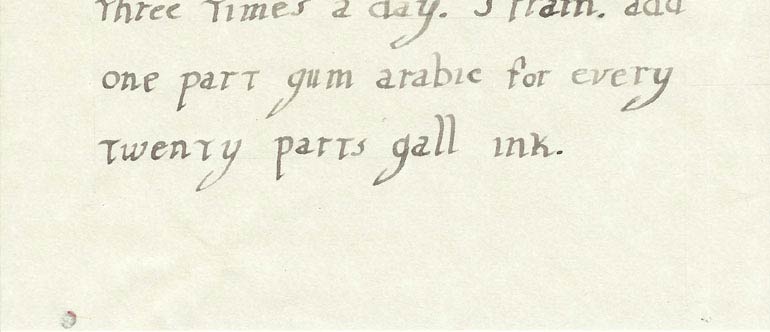 three times a day. Strain. add
one part gum arabic for every
twenty parts gall ink.